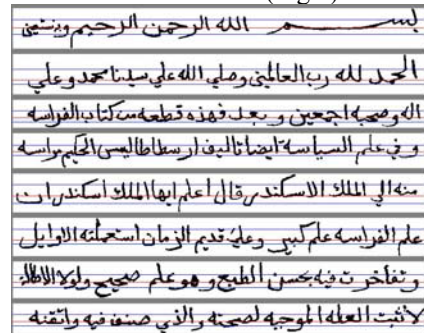 بسم الله الرحمن الرحيم وبه نستعين
الحمد لله رب العالمين وصلي الله علي سيدنا محمد وعلي
اله وصحبه اجمعين وبعد فهذه قطعه من كتاب الفراسه
وفي علم السياسه ايضا تاليف ارسطاطاليس الحكيم مراسه
منه الي الملك الاسكندر قال اعلم ايها الملك اسكندر ان
علم الفراسه علم كبير وعلي قديم الزمان استعملته الاوايل
وتفاخرت فيه بحسن الطبع وهو علم صحيح ولولا الاطاله
لاثبت العله الموجبه لصحته والذي صنف فيه واتقنه